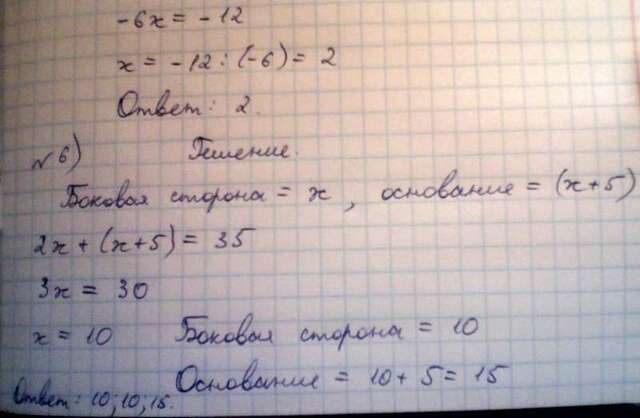 -6x = -12
x = -12 : (-6) = 2
Ответ: 2.
№6) Решение.
Боковая сторона = x, основание = (x+5)
2x + (x+5) = 35
3x = 30
x = 10 Боковая сторона = 10
Основание = 10 + 5 = 15
Ответ: 10; 10; 15.